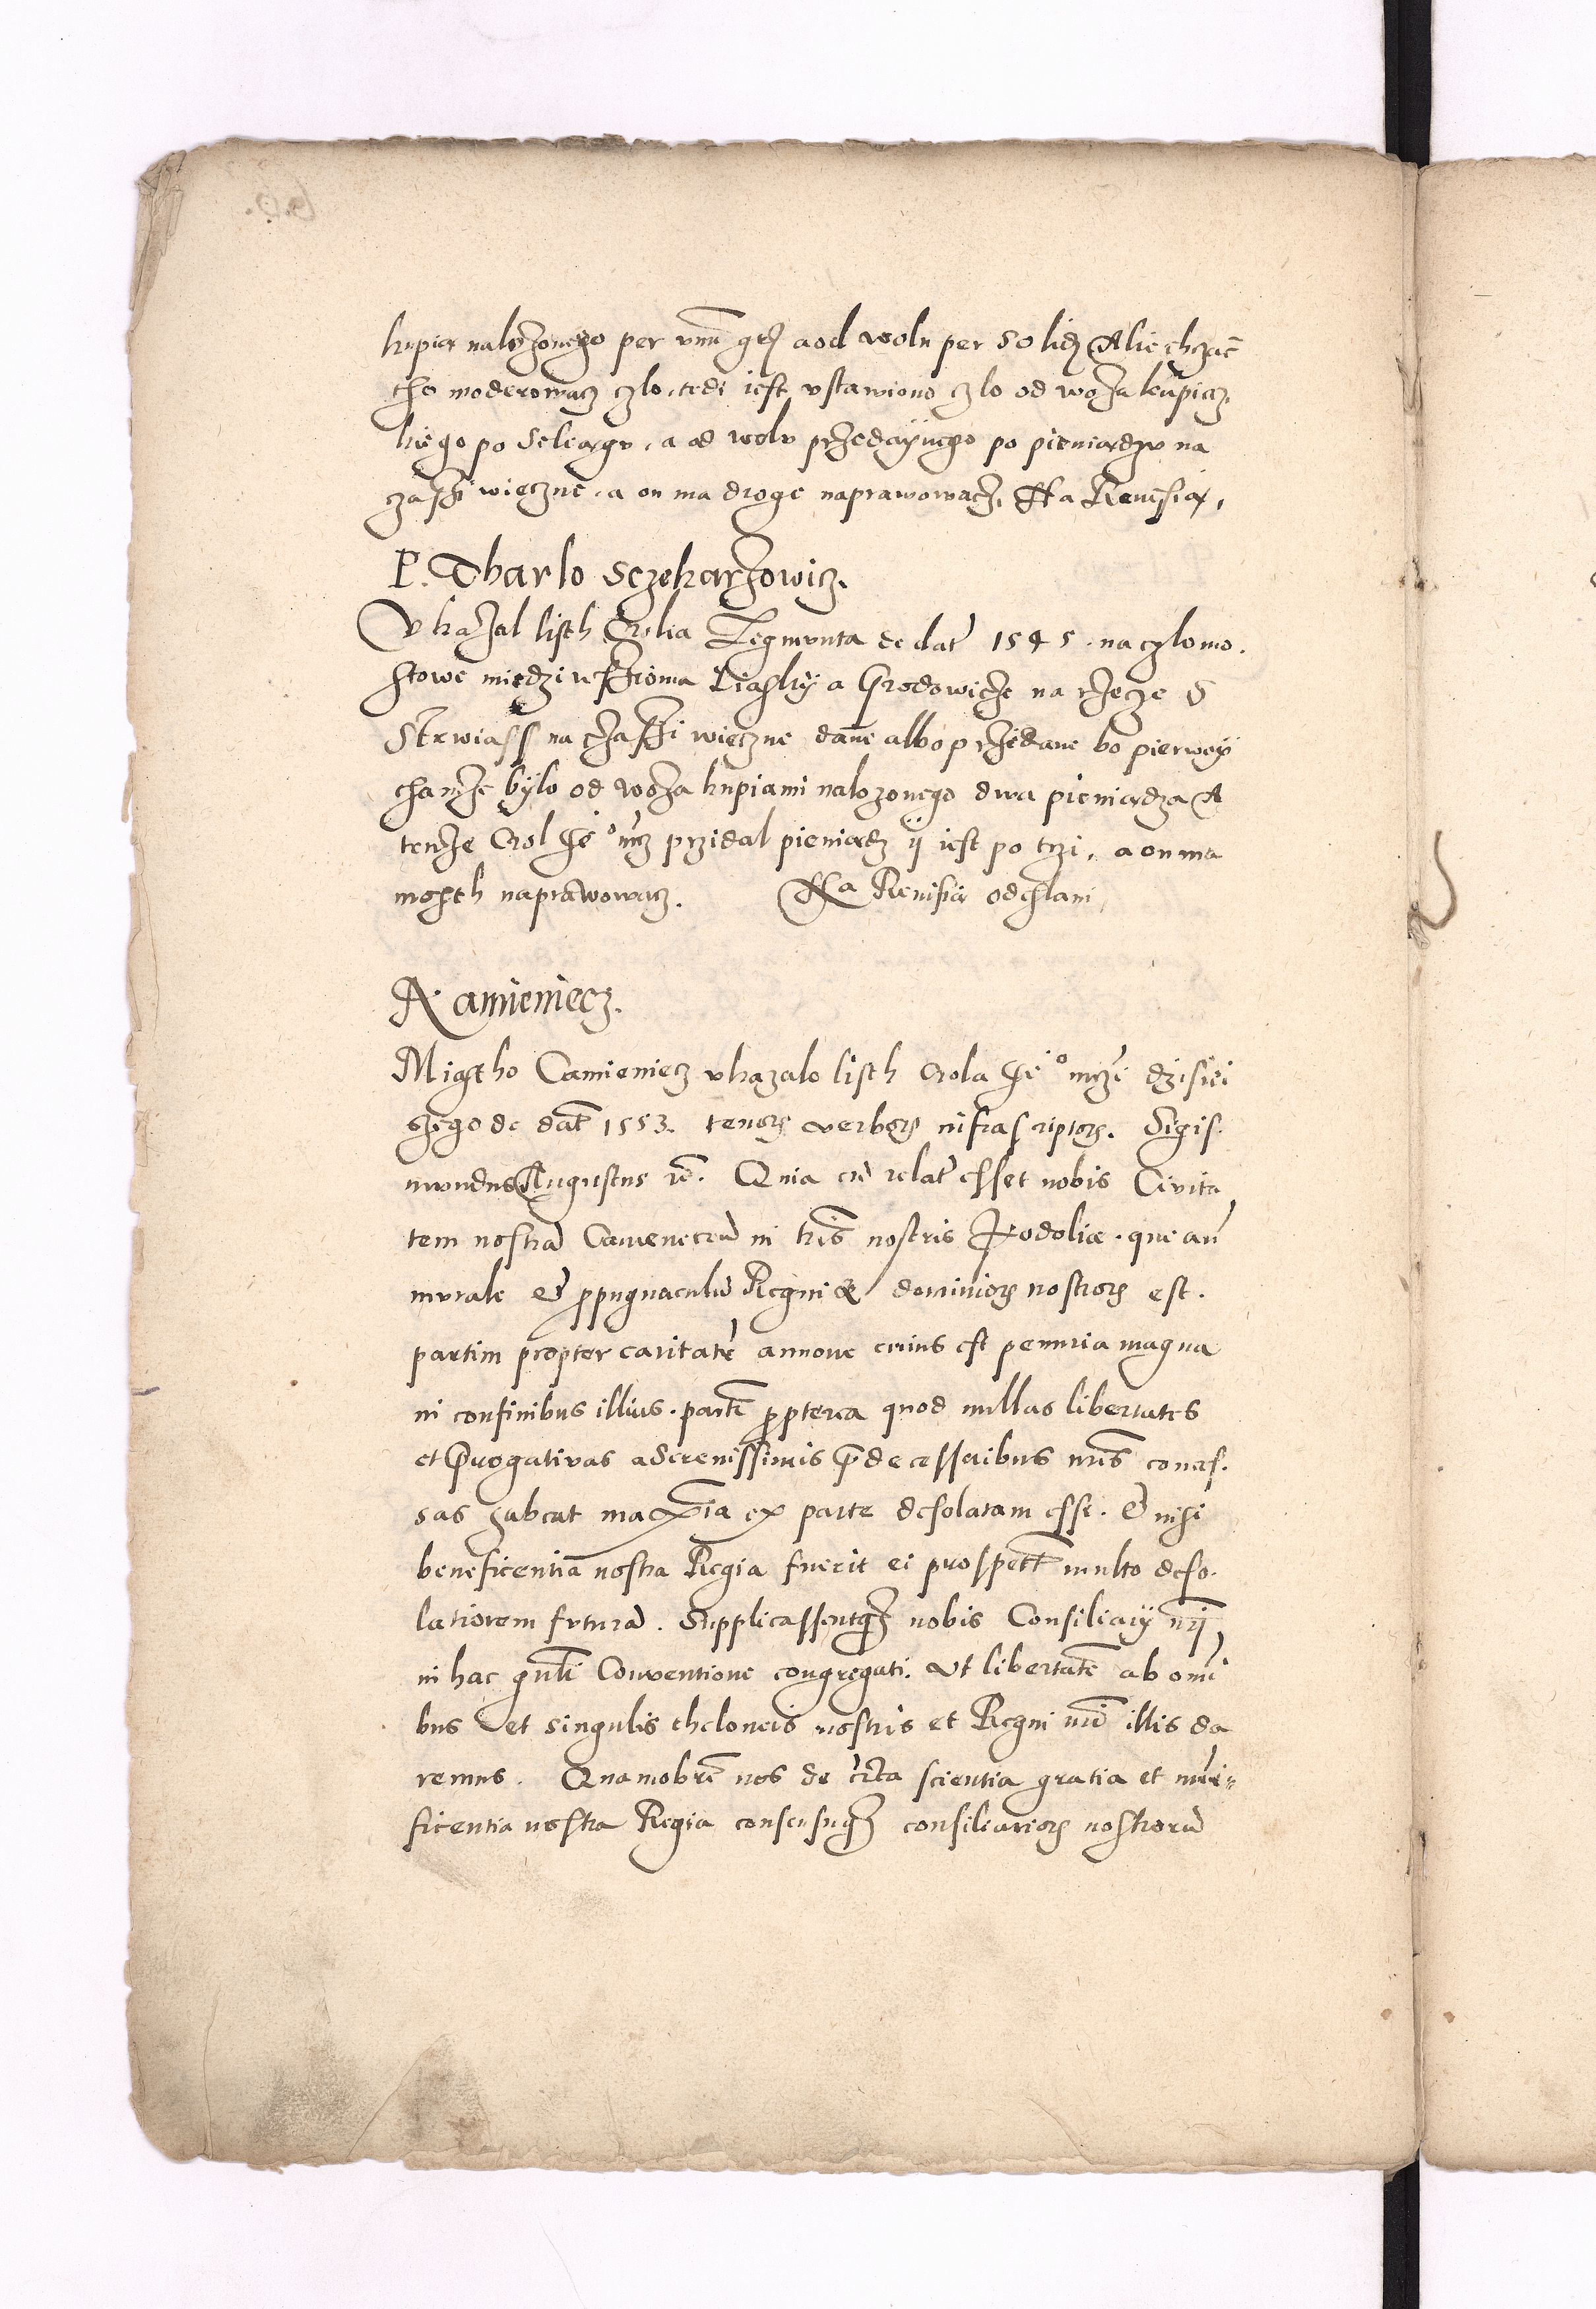 kupią nalozonego per vnũ gr̃ a od wolu per solid Alie chcząc
tho moderowacz czlo, tedi iest vstawiono czlo od woza kupiecz
kiego po Seliągu, a od wolu przedayнego po pieniądzu na
czassi wieczne, a on ma droge naprawowacz. Na Revisią,
P. Tharlo Sczekarzowicz.
Vkazal listh Crolia Zegmunta de dat 1545. na czlo mo.
stowe miedzi wssioma Liaszky a Grodowicze na rzecze S
Strwiass na czassi wieczne dane albo przedane bo pierwey
thamze bylo od woza kupiami nalozonego dwa pieniądza A
tenze Crol Je⁰ mcz przidal pieniądz ij iest po trzi, a on ma
mosth naprawowacz. Na Revisią odeslani
Kamieniecz.
Miastho Camieniecz vkazalo listh Crola Je⁰ mcze dzisiei
szego de dat 1553. tenor verbor infrascriptor. Sigis
mundus Augustus rc. Quia cũ relatũ esset nobis Civita
tem nostrã Camenecen in tris nostris Podoliæ. que an
murale et ppugnaculũ Regni & dominior nostror est.
partim propter caritatẽ annone cuius est penuria magna
in confinibus illius. partĩ ppterea quod nullas libertates
et prerogativas a Serenissimis predecessoribus nris conces.
sas habeat maxĩa ex parte desolatam esse. et nisi
beneficentia nostra Regia fuerit ei prospect multo deso.
latiorem futurã. Supplicassentq nobis Consiliarij nrj
in hac gnli Conventione congregati. Ut libertatẽ ab omi
bus et singulis theloneis nostris et Regni nri illis da
remus. Quamobrẽ nos de certa scientia gratia et muni
ficentia nostra Regia consensuq consiliarior nostrorũ